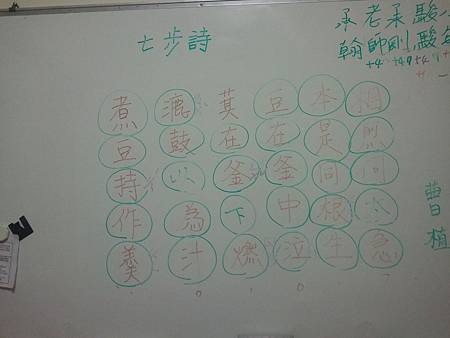 七步詩
煮豆持作羹
漉鼓以為汁
萁在釜下燃
豆在釜中泣
本是同根生
相煎何太急
曹植
承翰
老師